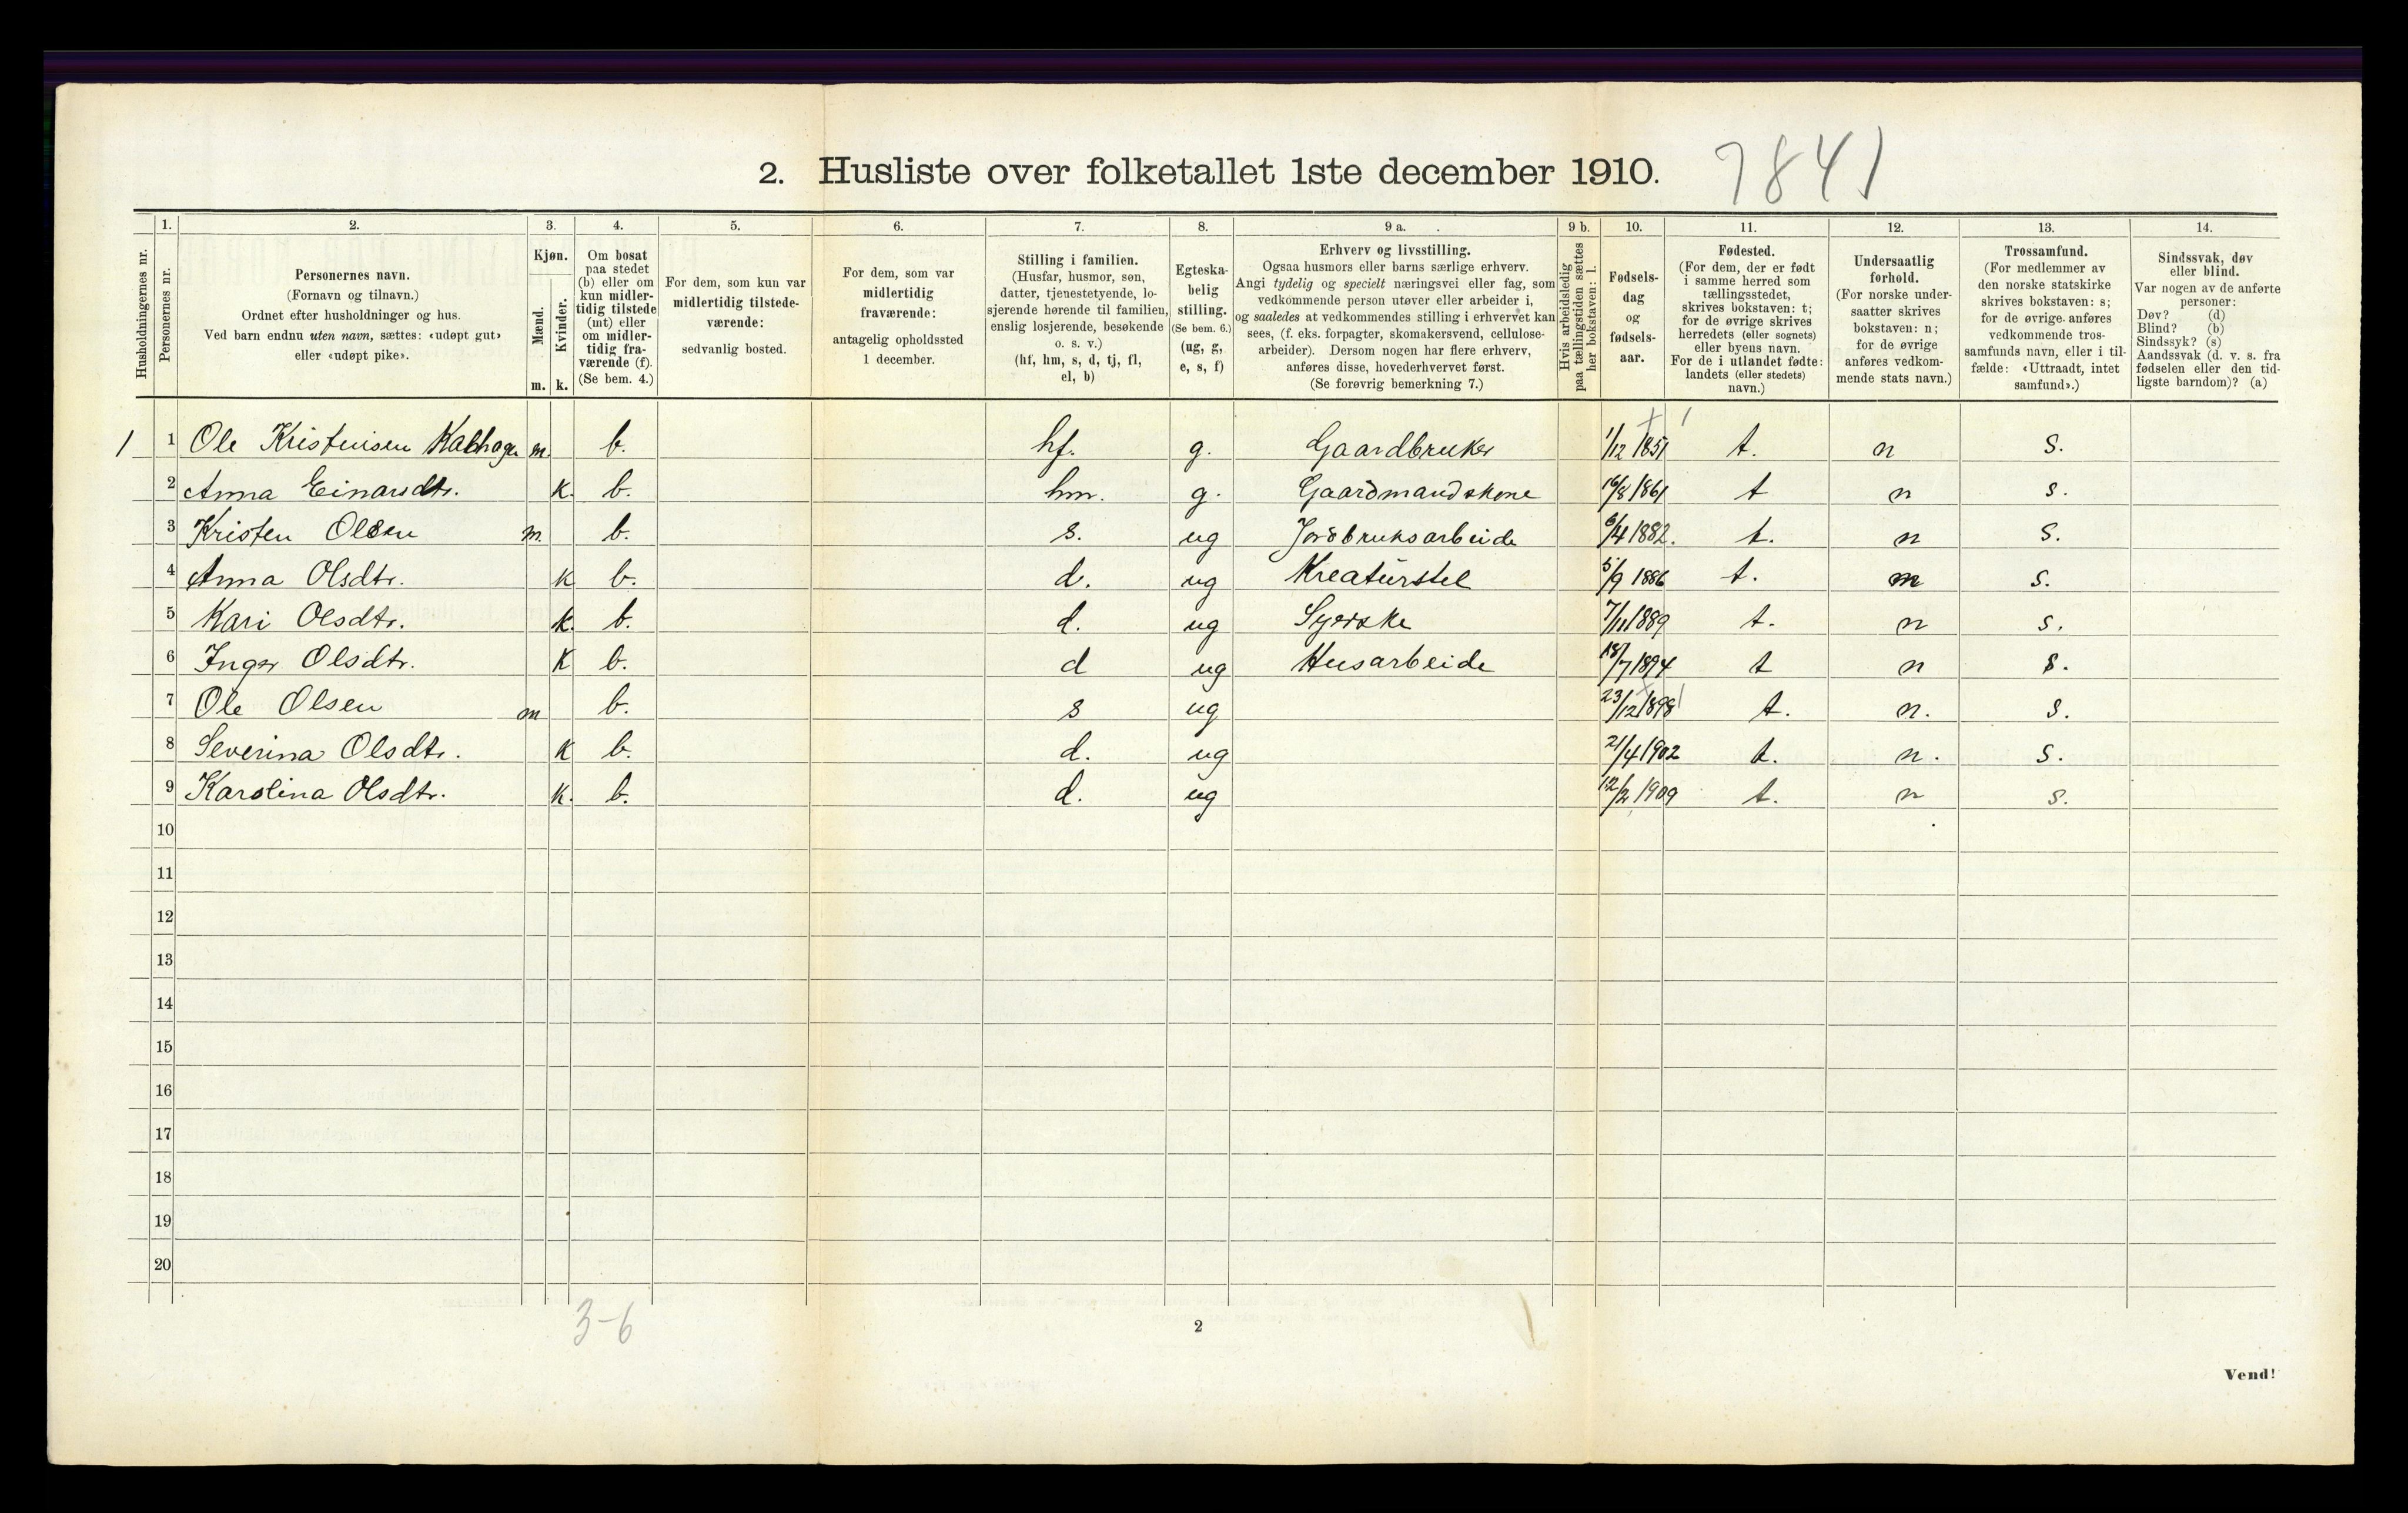 2. Husliste over folketallet 1ste december 1910. 7841
1. 2. 3. 4. 5. 6. 7. 8. 9 a. 9 b. 10. 11. 12. 13. 14.
Husholdningernes nr.
Personernes nr.
Personernes navn.
(Fornavn og tilnavn.)
Ordnet efter husholdninger og hus.
Ved barn endnu uten navn, sættes: «udøpt gut»
eller «udøpt pike».
Kjøn.
Mænd.
Kvinder.
m. k.
Om bosat
paa stedet
(b) eller om
kun midler-
tidig tilstede
(mt) eller
om midler-
tidig fra-
værende (f).
(Se bem. 4.)
For dem, som kun var
midlertidig tilstede-
værende:
sedvanlig bosted.
For dem, som var
midlertidig
fraværende:
antagelig opholdssted
1 december.
Stilling i familien.
(Husfar, husmor, søn,
datter, tjenestetyende, lo-
sjerende hørende til familien,
enslig losjerende, besøkende
o. s. v.)
(hf, hm, s, d, tj, fl,
el, b)
Egteska-
belig
stilling.
(Se bem. 6.)
(ug, g,
e, s, f)
Erhverv og livsstilling.
Ogsaa husmors eller barns særlige erhverv.
Angi tydelig og specielt næringsvei eller fag, som
vedkommende person utøver eller arbeider i,
og saaledes at vedkommendes stilling i erhvervet kan
sees, (f. eks. forpagter, skomakersvend, cellulose-
arbeider). Dersom nogen har flere erhverv,
anføres disse, hovederhvervet først.
(Se forøvrig bemerkning 7.)
Hvis arbeidsledig
paa tællingstiden sættes
her bokstaven: l.
Fødsels-
dag
og
fødsels-
aar.
Fødested.
(For dem, der er født
i samme herred som
tællingsstedet,
skrives bokstaven: t;
for de øvrige skrives
herredets (eller sognets)
eller byens navn.
For de i utlandet fødte:
landets (eller stedets)
navn.)
Undersaatlig
forhold.
(For norske under-
saatter skrives
bokstaven: n;
for de øvrige
anføres vedkom-
mende stats navn.)
Trossamfund.
(For medlemmer av
den norske statskirke
skrives bokstaven: s;
for de øvrige anføres
vedkommende tros-
samfunds navn, eller i til-
fælde: «Uttraadt, intet
samfund».)
Sindssvak, døv
eller blind.
Var nogen av de anførte
personer:
Døv? (d)
Blind? (b)
Sindssyk? (s)
Aandssvak (d. v. s. fra
fødselen eller den tid-
ligste barndom)? (a)
1 1 Ole Kristensen m. b. hf. g. Gaardbruker 1/12 1851 t. n s.
2 Anna Einarsdtr. k. b. hm. g. Gaardmandskone 16/8 1861 t n s.
3 Kristen Olsen m. b. s. ug Jordbruksarbeide 6/4 1882. t. n s.
4 Anna Olsdtr. k b. d. ug Kreaturstel 5/9 1886 t. n s.
5 Kari Olsdtr. k. b. d. ug Syerske 7/11 1889 t. n s.
6 Inger Olsdtr. k b. d ug Husarbeide 18/7 1894 t n s.
7 Ole Olsen m b. s ug 23/12 1898 t. n. s.
8 Severina Olsdtr. k b. d. ug 21/4 1902 t. n. s.
9 Karolina Olsdtr. k. b. d. ug 12/2 1909 t. n s.
10
11
12
13
14
15
16
17
18
19
20
3-6
2
Vend!